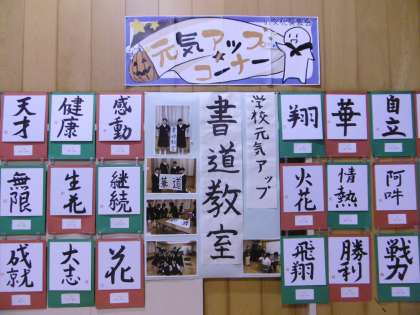 元気アップ
コーナー
学校元気アップ
書道教室
感動
健康
天才
継続
生花
無限
花
大志
成就
自立
華
翔
阿吽
情熱
火花
戦力
勝利
飛翔
華道